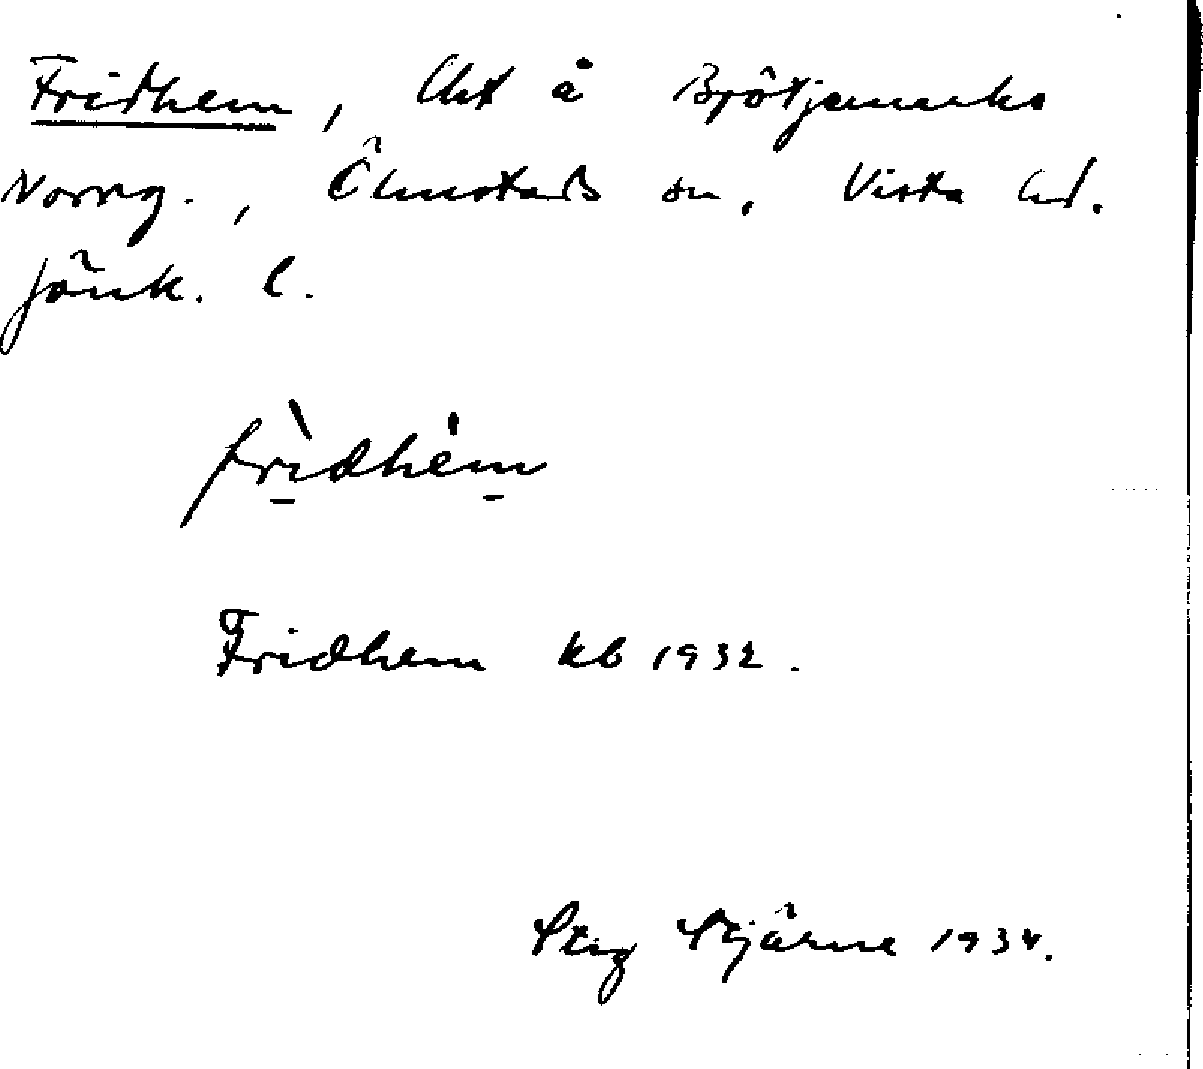 Fridhem, lht å Björtjemarks
Norrg., Ölmstads sn, Vista hd.
Jönk. l.
frìdhèm
Fridhem kb 1932.
Stig Stjärne 1934.